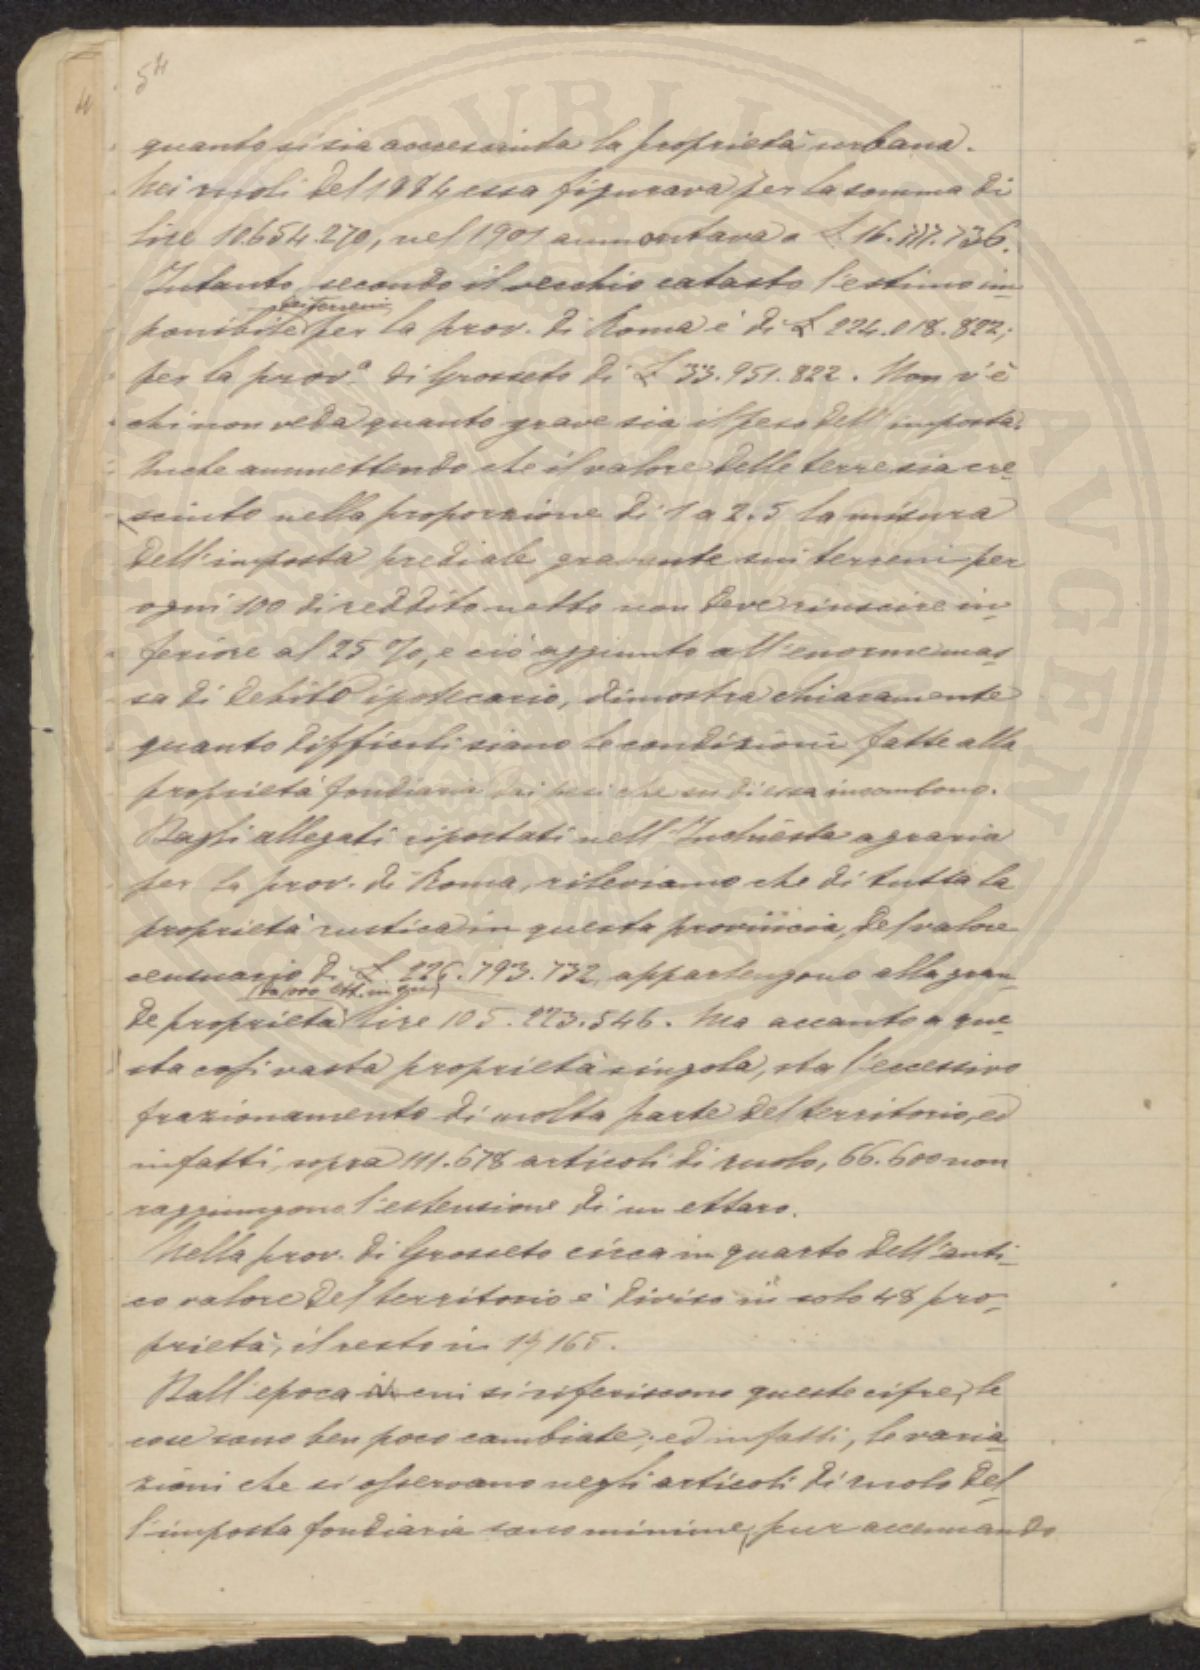 54
quanto si sia accresciuta la proprietà urbana.
Nei ruoli del 1884 essa figurava per la somma di
lire 10.654.270, nel 1901 ammontava a £ 16.717.736.
Intanto, secondo il vecchio catasto l'estimo im-
dei terreni
ponibile per la prov. di Roma è di £ 224.018.822;
per la prov.a di Grosseto di £ 33.951.822. Non v'è
chi non veda quanto grave sia il peso dell'imposta.
Anche ammettendo che il valore delle terre sia cre-
sciuto nella proporzione di 1 a 2.5 la misura
dell'imposta prediale gravante sui terreni per
ogni 100 di reddito netto non deve riuscire in-
feriore al 25 %, e ciò aggiunto all'enorme mas-
sa di debito ipotecario, dimostra chiaramente
quanto difficili siano le condizioni fatte alla
proprietà fondiaria dai pesi che su di essa incombono.
Dagli allegati riportati nell'Inchiesta agraria
per la prov. di Roma, rileviamo che di tutta la
proprietà rustica in questa provincia, del valore
censuario di £ 226.793.732, appartengono alla gran-
de proprietà lire 105.223.546. Ma accanto a que-
sta così vasta proprietà singola, sta l'eccessivo
frazionamento di molta parte del territorio, ed
infatti, sopra 111.678 articoli di ruolo, 66.600 non
raggiungono l'estensione di un ettaro.
Nella prov. di Grosseto circa un quarto dell'anti-
co valore del territorio è diviso in solo 48 pro-
prietà, il resto in 19165.
Dall'epoca cui si riferiscono queste cifre, le
cose sono ben poco cambiate, ed infatti, le varia-
zioni che si osservano negli articoli di ruolo del-
l'imposta fondiaria sono minime, pur accennando